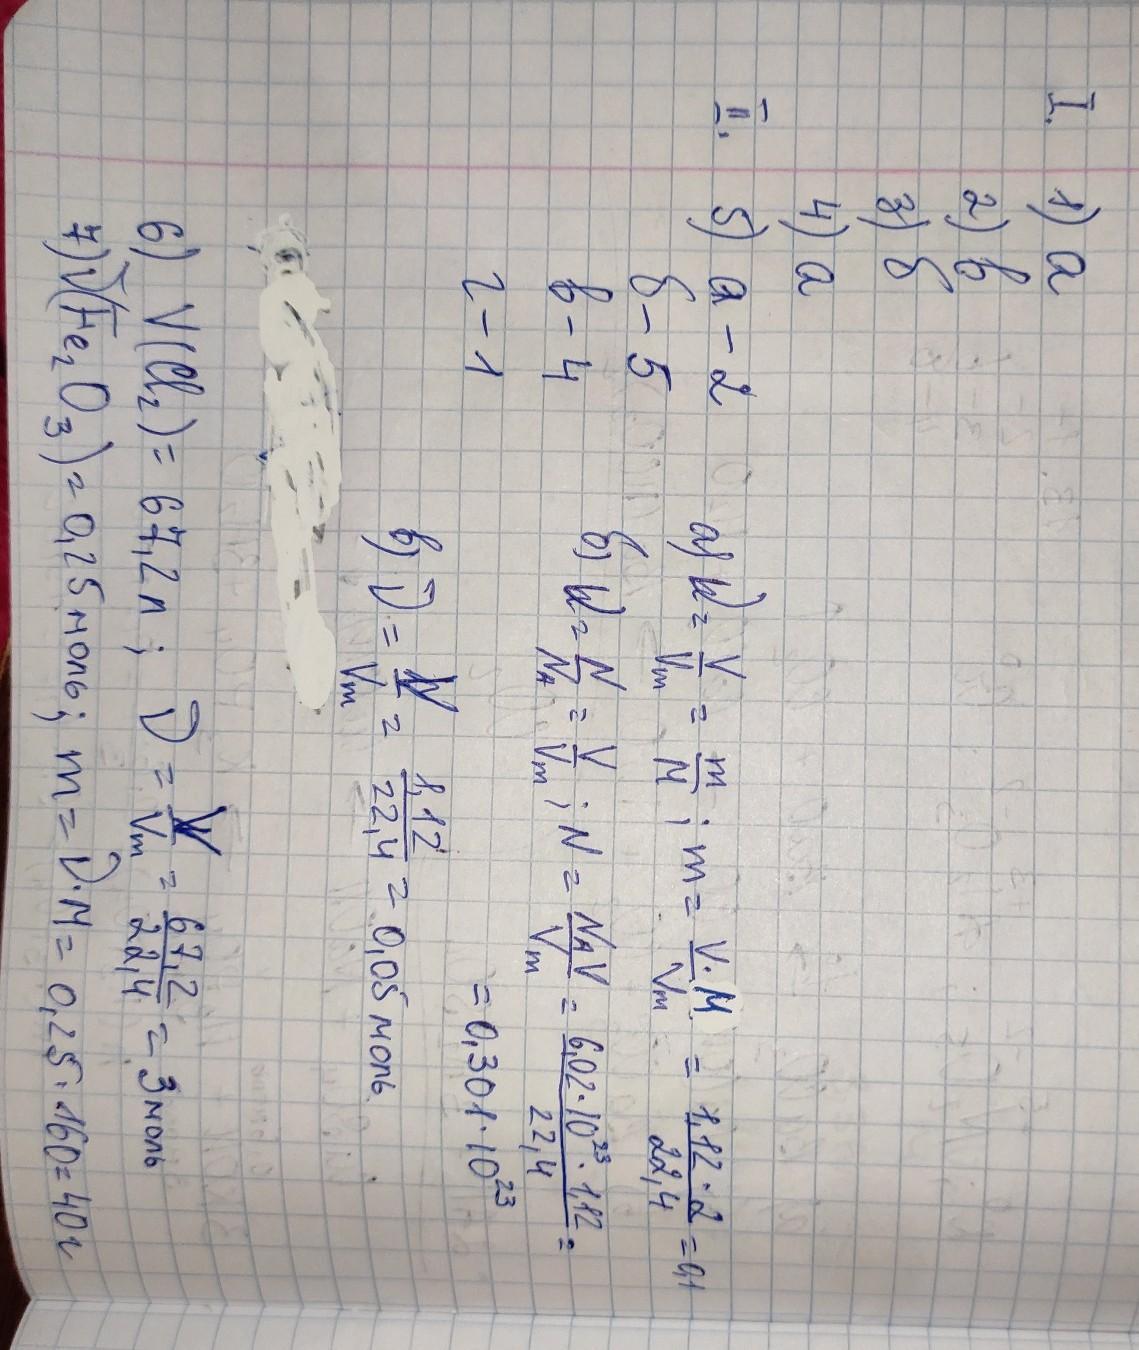 I. 1) а
2) в
3) б
4) а
II. 5) а – 2
б – 5
в – 4
г – 1
а) ν = V/Vm = m/M ; m = V·M/Vm = 1,12·2/22,4 = 0,1
б) ν = N/NA = V/Vm ; N = NAV/Vm = 6,02·10²³·1,12/22,4 =
= 0,301·10²³
в) ν = V/Vm = 1,12/22,4 = 0,05 моль
6) V(Cl₂) = 67,2 л ; ν = V/Vm = 67,2/22,4 = 3 моль
7) ν(Fe₂O₃) = 0,25 моль ; m = ν·M = 0,25·160 = 40 г